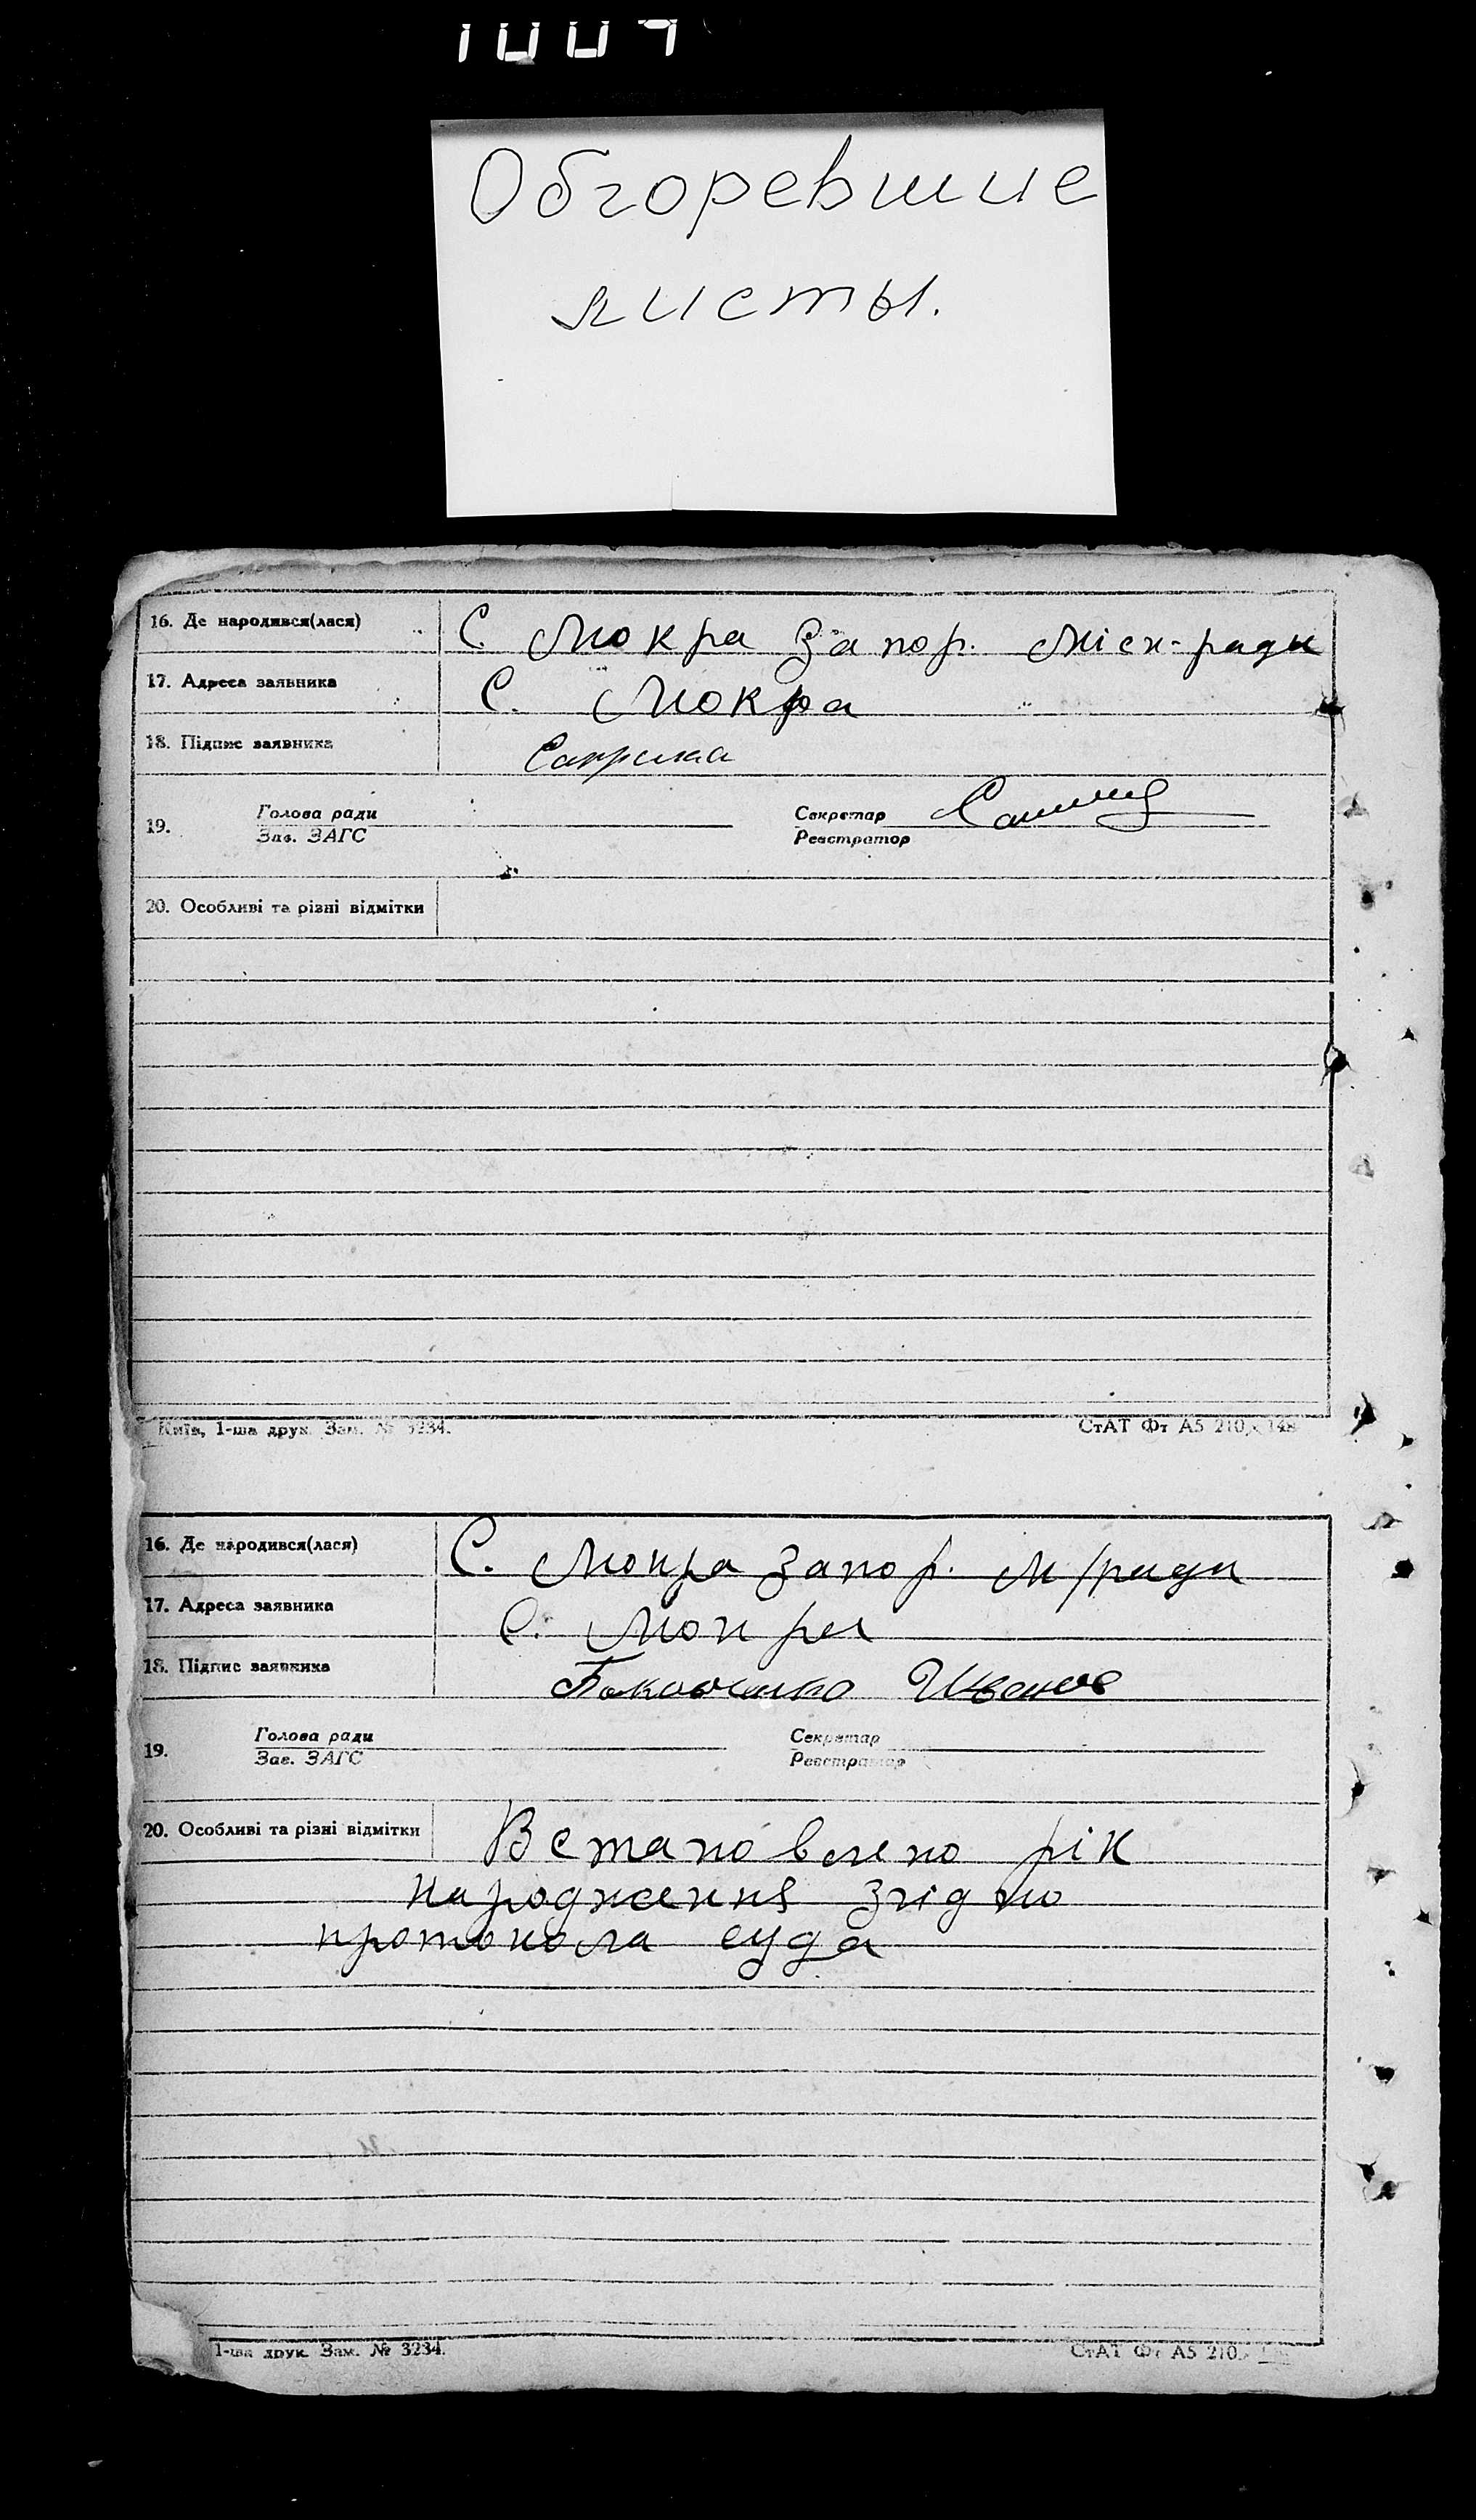 Обгоревшие
листы.
16. Де народився(лася) С. Мокра Запор. Міск-ради
17. Адреса заявника С. Мокра
18. Підпис заявника
Голова ради Секретар
19. Зав. ЗАГС Реєстратор
20. Особливі та різні відмітки
Київ, 1-ша друк. Зам. № 3234. СтАТ Фт А5 210 × 148
16. Де народився(лася) С. Мокра Запор. М/ради
17. Адреса заявника С. Мокра
18. Підпис заявника
Голова ради Секретар
19. Зав. ЗАГС Реєстратор
20. Особливі та різні відмітки Встановлено рік
народження згідно
протокола суда
1-ша друк. Зам. № 3234. СтАТ Фт А5 210